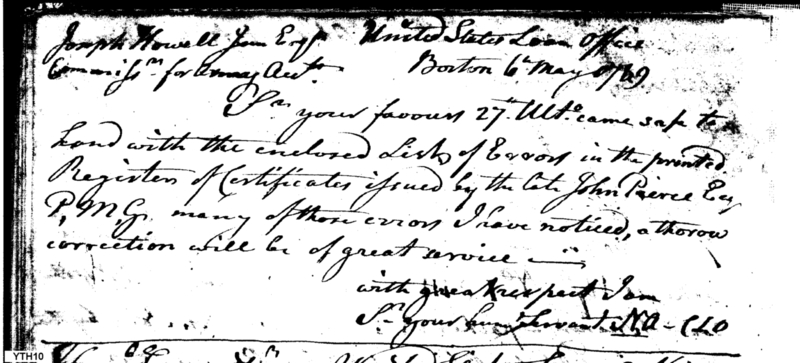 Joseph Howell Jun Esqr United States Loan Office
Commissr. for army Acts. Boston 6th May 1789
Sr. your favours 27th. Ulto. came safe to
hand with the enclosed List of Errors in the printed
Registers of Certificates issued by the late John Pierce Esq
P,M,G, many of those errors I have noticed, a thorow
correction will be of great service
with great respect I am
Sr. your humb servant NA - CLO
YTH10